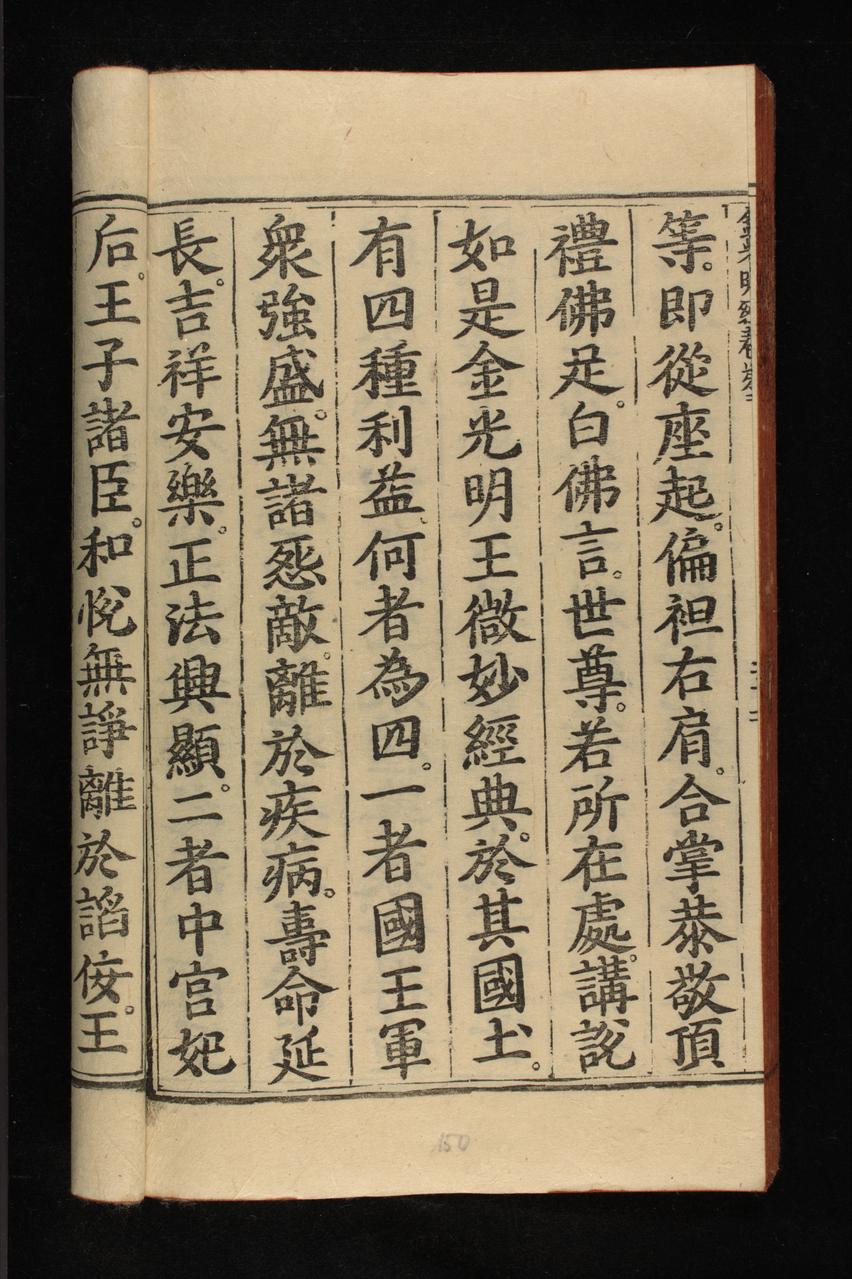 金光明經卷第
等。即從座起。偏袒右肩。合掌恭敬頂
禮佛足。白佛言。世尊。若所在處。講說
如是金光明王微妙經典。於其國土。
有四種利益、何者為四。一者國王軍
衆強盛。無諸怨敵。離於疾病。壽命延
長。吉祥安樂。正法興顯。二者中宮妃
后。王子諸臣。和悅無諍離於謟侫。王
150